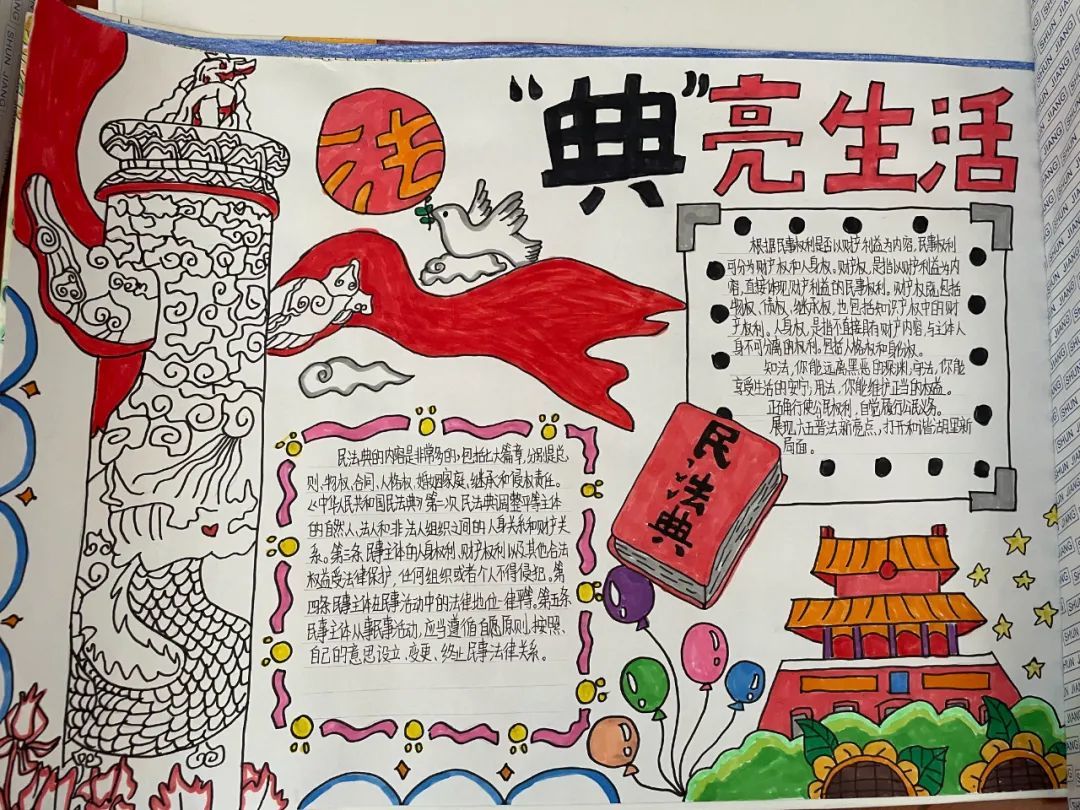 “典”亮生活
法
根据民事权利是否以财产利益为内容,民事权利
可分为财产权和人身权。财产权,是指以财产利益为内
容,直接体现财产利益的民事权利。财产权既包括
物权、债权、继承权,也包括知识产权中的财
产权利。人身权,是指不直接具有财产内容,与主体人
身不可分离的权利。包括人格权和身份权。
知法,你能远离黑恶的深渊;守法,你能
享受生活的安宁;用法,你能维护正当的权益。
正确行使公民权利,自觉履行公民义务。
展现六五普法新亮点,打开和谐湖里新
局面。
民法典
民法典的内容是非常多的,包括七大篇章,分别是总
则、物权、合同、人格权、婚姻家庭、继承和侵权责任。
《中华人民共和国民法典》第一次,民法典调整平等主体
的自然人、法人和非法人组织之间的人身关系和财产关
系。第三条民事主体的人身权利、财产权利以及其他合法
权益受法律保护,任何组织或者个人不得侵犯。第
四条民事主体在民事活动中的法律地位一律平等。第五条
民事主体从事民事活动,应当遵循自愿原则,按照
自己的意思设立、变更、终止民事法律关系。
SHUN JIANG